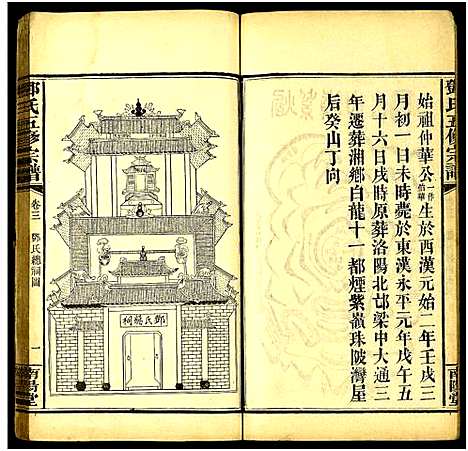 鄧氏五修宗譜
始祖仲華公一作怡華生於西漢元始二年壬戌三
月初一日未時薨於東漢永平元年戊午五
月十六日戌時原葬洛陽北邙梁中大通三
年遷葬湘鄉白龍十一都煙紫嶺珠陂灣屋
后癸山丁向
南陽堂
鄧氏總祠
鄧氏五修宗譜
卷三
鄧氏總祠圖
一
南陽堂